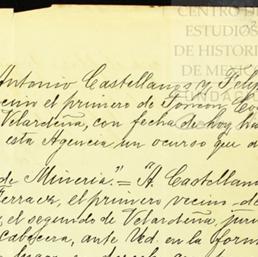 CENTRO DE
ESTUDIOS
DE HISTORIA
DE MEXICO
FUNDACION
Antonio Castellanos y Felip
vecino el primero de Torreon, Coa
Velardeña, con fecha de hoy ha
esta Agencia un ocurso que d
de Mineria." = "A. Castellano
Terraez, el primero vecino de
, el segundo de Velardeña, juris
Cabecera, ante Ud. en la forma